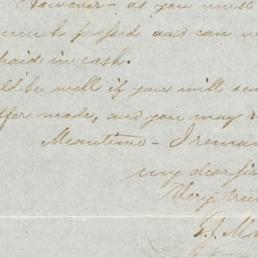 However - as you must
much pressed and can
paid in cash.
be well if you will
offer made, and you may
Meantime - I remain
my dear sir
Very tru